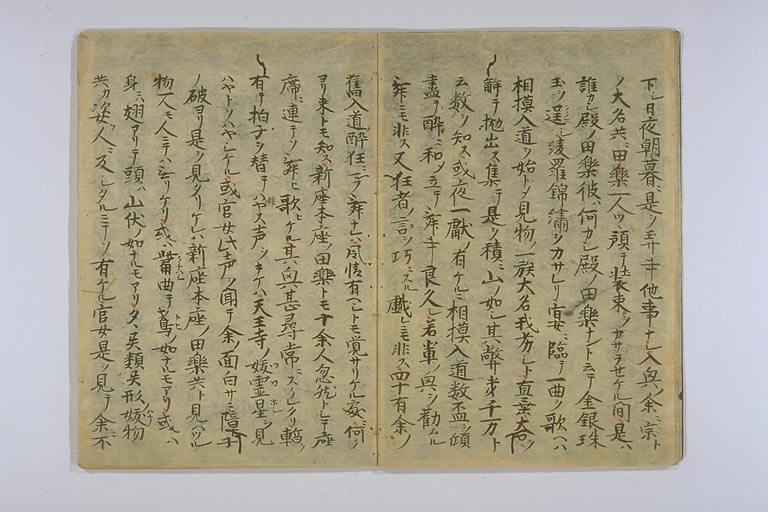 下シ日夜朝暮ニ是ヲ弄ヿ他事ナシ入興ノ余ニ宗ト
ノ大名共ニ田楽一人ツヽ預テ装束ヲカサラセケル間是ハ
誰カシ殿ノ田楽彼ハ何カシ殿ノ田楽ナント云テ金銀珠
玉ヲ逞シ綾羅錦繍ヲカサレリ宴ニ臨テ一曲ヲ歌ヘハ
相摸入道ヲ始トノ見物ノ一族大名我劣シト直垂大口ヲ
解テ抛出ス集テ是ヲ積ニ山ノ如シ其弊ヘ幾千万ト
云数ヲ知ス或夜一献ノ有ケルニ相摸入道数盃ヲ傾
盡テ酔ニ和ノ立テ舞ヿ良久シ若輩ノ興ヲ勧ムル
舞ニモ非ス又狂者ノ言ヲ巧ニスル戯ニモ非ス四十有余ノ
舊入道酔狂ニテ舞ナレハ風情有ヘシトモ覚サリケル処ニ何ノ
ヨリ来トモ知ス新座本座ノ田楽トモ十余人忽然トシテ座
席ニ連テソ舞ヒ歌ヒケル其興甚尋常ニスクレタリ暫ノ
有テ拍子ヲ替テハヤス声ヲキケハ天王寺ノ妖霊星ヲ見
ハヤトソハヤシケル或官女此声ヲ聞テ余ノ面白サニ障子
ノ破ヨリ是ヲ見タリケレハ新座本座ノ田楽共ト見ヘツル
物一人モ人ニテハ无リケリ或ハ觜曲テ鳶ノ如ナルモアリ或ハ
身ニ翅アリテ頭ハ山伏ノ如ナルモアリタヽ異類異形ノ妖物
共カ姿ヲ人ニ反シタルニテソ有ケル官女是ヲ見テ余ニ不